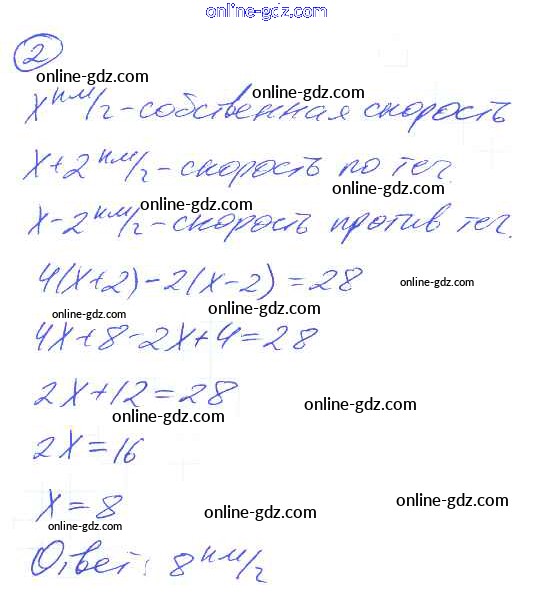 online-gdz.com
2
online-gdz.com
online-gdz.com
x км/г - собственная скорость
x+2 км/г - скорость по теч.
online-gdz.com
online-gdz.com
x-2 км/г - скорость против теч.
4(x+2)-2(x-2)=28
online-gdz.com
online-gdz.com
online-gdz.com
4x+8-2x+4=28
2x+12=28
online-gdz.com
online-gdz.com
2x=16
x=8
online-gdz.com
online-gdz.com
online-gdz.com
Ответ: 8 км/г